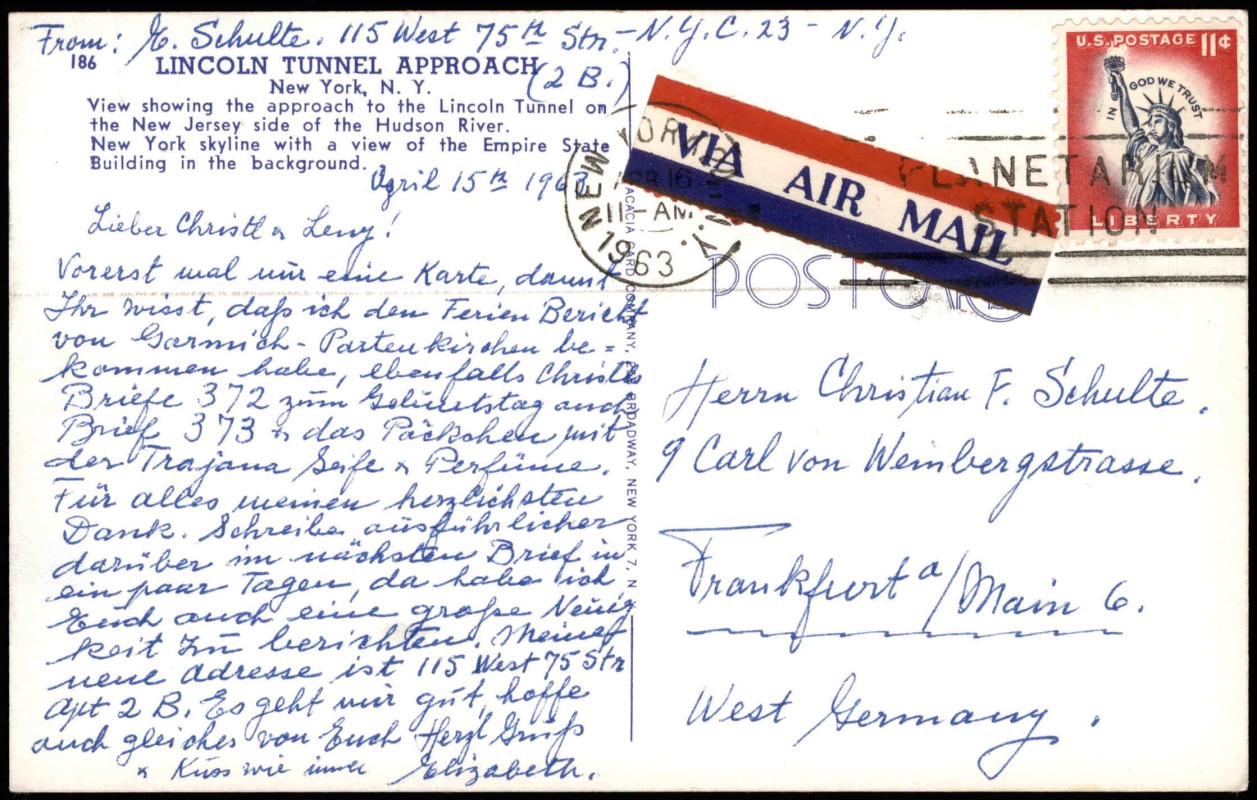 From: E. Schulte. 115 West 75th Str.- N.Y.C. 23 - N.Y.
(2 B.)
186
LINCOLN TUNNEL APPROACH
New York, N. Y.
View showing the approach to the Lincoln Tunnel on
the New Jersey side of the Hudson River.
New York skyline with a view of the Empire State
Building in the background.
April 15th 1963
Lieber Christl & Leny!
Vorerst mal nur eine Karte, damit
Ihr wisst, daß ich den Ferien Bericht
von Garmich-Partenkirchen be=
kommen habe, ebenfalls Christls
Briefe 372 zum Geburtstag auch
Brief 373 & das Päckchen mit
der Trajana Seife & Perfüme.
Für alles meinen herzlichsten
Dank. Schreibe ausführlicher
darüber im nächsten Brief in
ein paar Tagen, da habe ich
Euch auch eine große Neuig
keit zu berichten. Meine
neue Adresse ist 115 West 75 Str
Apt 2 B. Es geht mir gut, hoffe
auch gleiches von Euch Herzl Gruß
& Kuss wie immer Elizabeth.
ACACIA CARD COMPANY, BROADWAY, NEW YORK 7, N.
NEW YORK, N.Y.
APR 16
11 - AM
1963
VIA AIR MAIL
PLANETARIUM
STATION
U.S. POSTAGE 11¢
IN GOD WE TRUST
LIBERTY
POST CARD
Herrn Christian F. Schulte.
9 Carl von Weinbergstrasse.
Frankfurt a/Main 6.
West Germany.